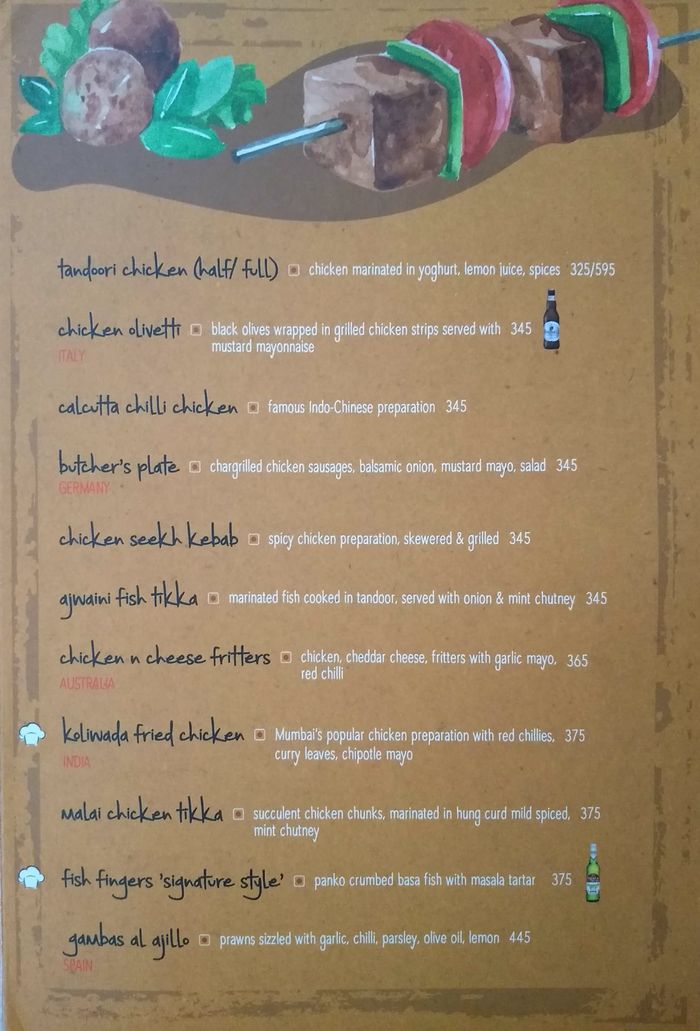 tandoori chicken (half/ full) chicken marinated in yoghurt, lemon juice, spices 325/595
chicken olivetti black olives wrapped in grilled chicken strips served with 345
mustard mayonnaise
ITALY
calcutta chilli chicken famous Indo-Chinese preparation 345
butcher's plate chargrilled chicken sausages, balsamic onion, mustard mayo, salad 345
GERMANY
chicken seekh kebab spicy chicken preparation, skewered & grilled 345
ajwaini fish tikka marinated fish cooked in tandoor, served with onion & mint chutney 345
chicken n cheese fritters chicken, cheddar cheese, fritters with garlic mayo, 365
red chilli
AUSTRALIA
koliwada fried chicken Mumbai's popular chicken preparation with red chillies, 375
curry leaves, chipotle mayo
INDIA
malai chicken tikka succulent chicken chunks, marinated in hung curd mild spiced, 375
mint chutney
fish fingers 'signature style' panko crumbed basa fish with masala tartar 375
gambas al ajillo prawns sizzled with garlic, chilli, parsley, olive oil, lemon 445
SPAIN